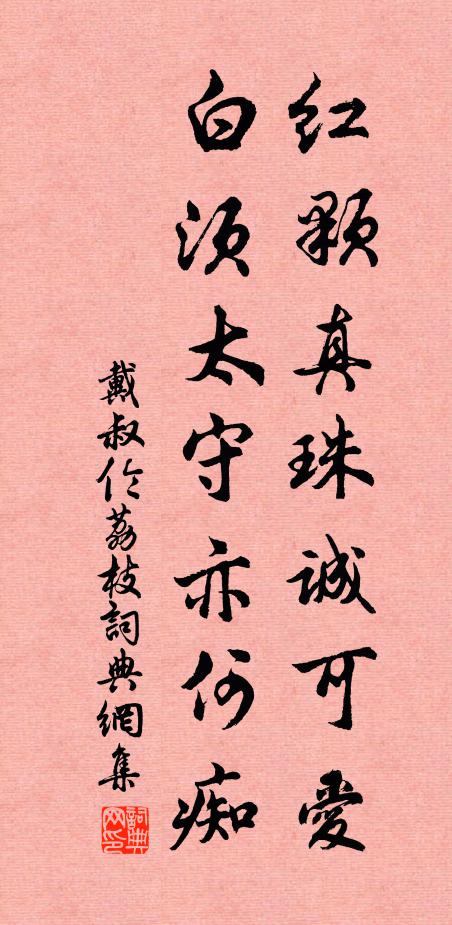 红颗真珠诚可爱
白须太守亦何痴
戴叔伦荔枝词典網集
詞典网印